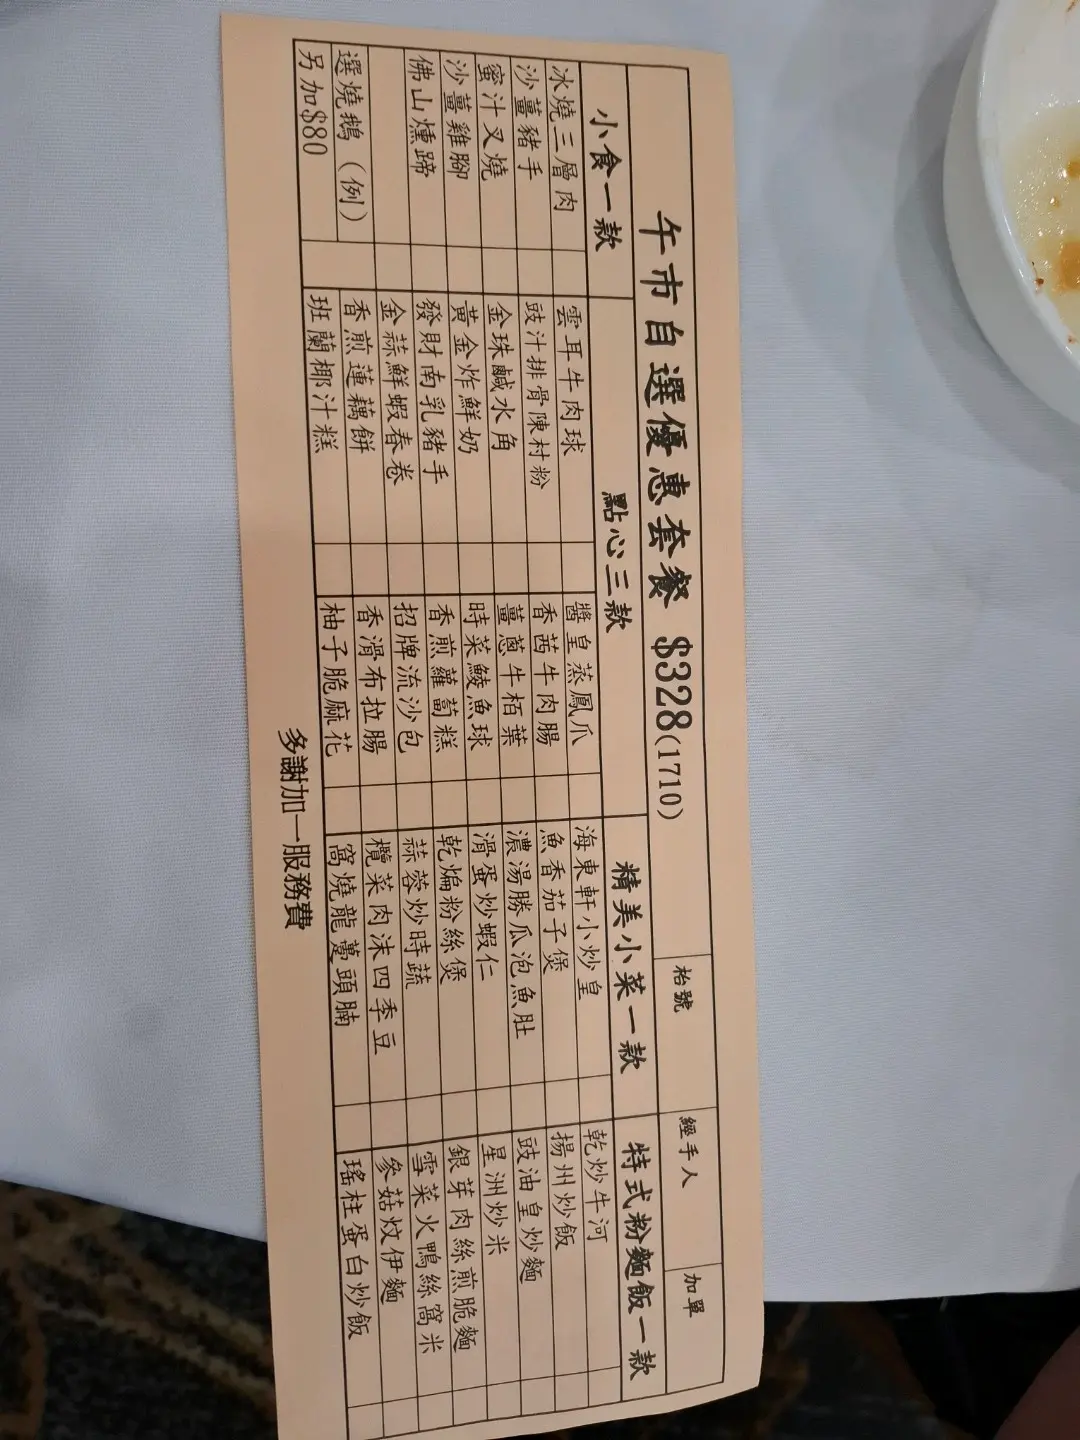 午市自選優惠套餐 $328(1710)
枱號
經手人
加單
小食一款
點心三款
精美小菜一款
特式粉麵飯一款
冰燒三層肉
雲耳牛肉球
醬皇蒸鳳爪
海東軒小炒皇
乾炒牛河
沙薑豬手
豉汁排骨陳村粉
香茜牛肉腸
魚香茄子煲
揚州炒飯
蜜汁叉燒
金珠鹹水角
薑蔥牛栢葉
濃湯勝瓜泡魚肚
豉油皇炒麵
沙薑雞腳
黃金炸鮮奶
時菜鯪魚球
滑蛋炒蝦仁
星洲炒米
佛山燻蹄
發財南乳豬手
香煎蘿蔔糕
乾煸粉絲煲
銀芽肉絲煎脆麵
金蒜鮮蝦春卷
招牌流沙包
蒜蓉炒時蔬
雪菜火鴨絲窩米
選燒鵝(例)
香煎蓮藕餅
香滑布拉腸
欖菜肉沫四季豆
參菇炆伊麵
另加$80
班蘭椰汁糕
柚子脆麻花
窩燒龍躉頭腩
瑤柱蛋白炒飯
多謝加一服務費